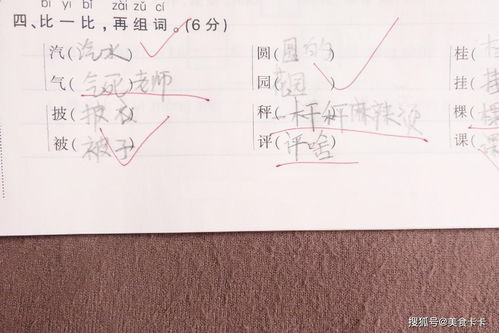 bǐ yì bǐ zài zǔ cí
四、比一比，再组词。(6分)
汽(汽水) 圆(圆的) 桂(
气(气死)老师 园( 园) 挂(
披(披衣) 秤(一杆秤麻辣烫 棵(
被(被子) 评(评啥) 课(课
搜狐号@美食卡卡